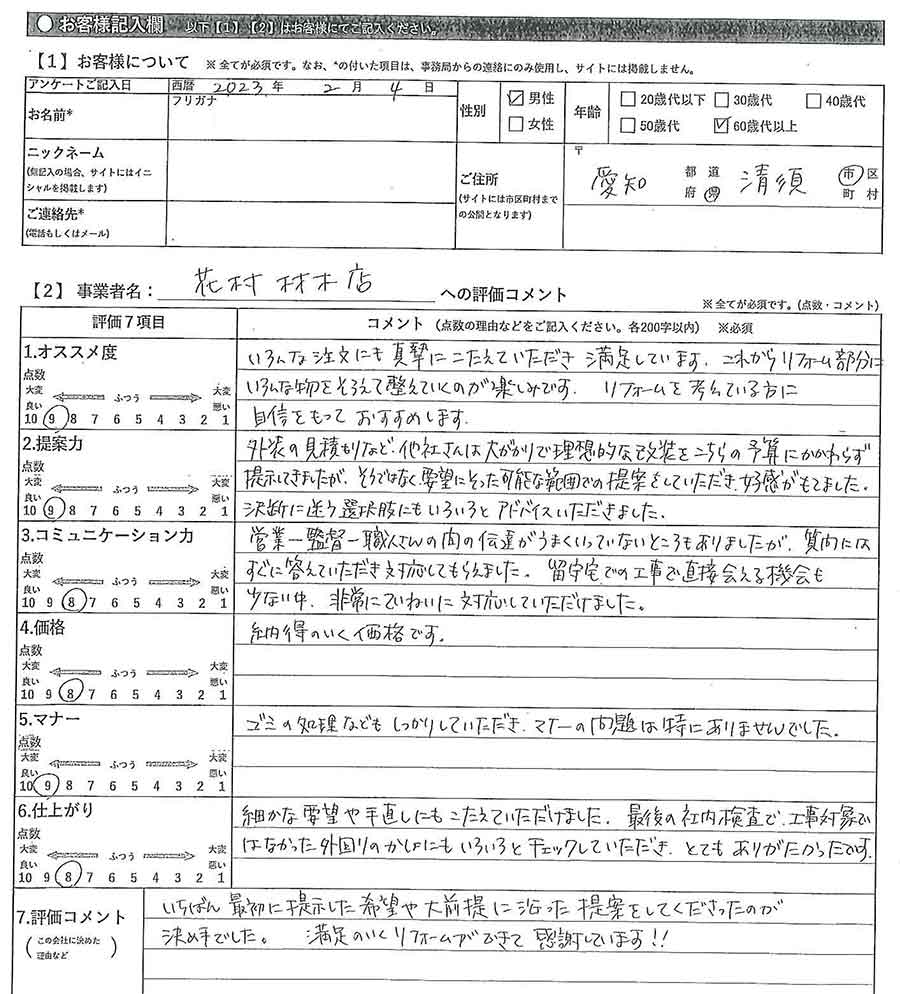 ● お客様記入欄 以下【1】、【2】はお客様にてご記入ください。
【1】お客様について ※全てが必須です。なお、*の付いた項目は、事務局からの連絡にのみ使用し、サイトには掲載しません。
アンケートご記入日 西暦 2023 年 2 月 4 日
フリガナ
お名前*
性別 ☑ 男性 □ 女性
年齢 □ 20歳代以下 □ 30歳代 □ 40歳代
□ 50歳代 ☑ 60歳代以上
ニックネーム
(無記入の場合、サイトにはイニシャルを掲載します)
ご連絡先*
(電話もしくはメール)
ご住所
(サイトには市区町村までの公開となります)
〒
愛知 都道府県 清須 市区町村
【2】事業者名: 花村材木店 への評価コメント
※全てが必須です。(点数・コメント)
評価7項目 コメント (点数の理由などをご記入ください。各200字以内) ※必須
1.オススメ度
点数
大変良い ふつう 大変悪い
10 9 8 7 6 5 4 3 2 1
いろんな注文にも真摯にこたえていただき 満足しています。これからリフォーム部分に
いろんな物をそろえて整えていくのが楽しみです。 リフォームを考えている方に
自信をもっておすすめします。
2.提案力
点数
大変良い ふつう 大変悪い
10 9 8 7 6 5 4 3 2 1
外装の見積もりなど、他社さんは大がかりで理想的な改装をこちらの予算にかかわらず
提示してきましたが、そうではなく要望にそった可能な範囲での提案をしていただき、好感がもてました。
決断に迷う選択肢にもいろいろとアドバイスいただきました。
3.コミュニケーション力
点数
大変良い ふつう 大変悪い
10 9 8 7 6 5 4 3 2 1
営業ー監督ー職人さんの内の伝達がうまくいっていないところもありましたが、質問には
すぐに答えていただき対応してもらえました。留守宅での工事で直接会える機会も
少ない中、非常にていねいに対応していただけました。
4.価格
点数
大変良い ふつう 大変悪い
10 9 8 7 6 5 4 3 2 1
納得のいく価格です。
5.マナー
点数
大変良い ふつう 大変悪い
10 9 8 7 6 5 4 3 2 1
ゴミの処理などもしっかりしていただき、マナーの問題は特にありませんでした。
6.仕上がり
点数
大変良い ふつう 大変悪い
10 9 8 7 6 5 4 3 2 1
細かな要望や手直しにもこたえていただけました。最後の社内検査で、工事対象で
はなかった外回りのかしょにもいろいろとチェックしていただき、とてもありがたかったです。
7.評価コメント
(この会社に決めた理由など)
いちばん最初に提示した希望や大前提に沿った提案をしてくださったのが
決め手でした。 満足のいくリフォームができて感謝しています!!